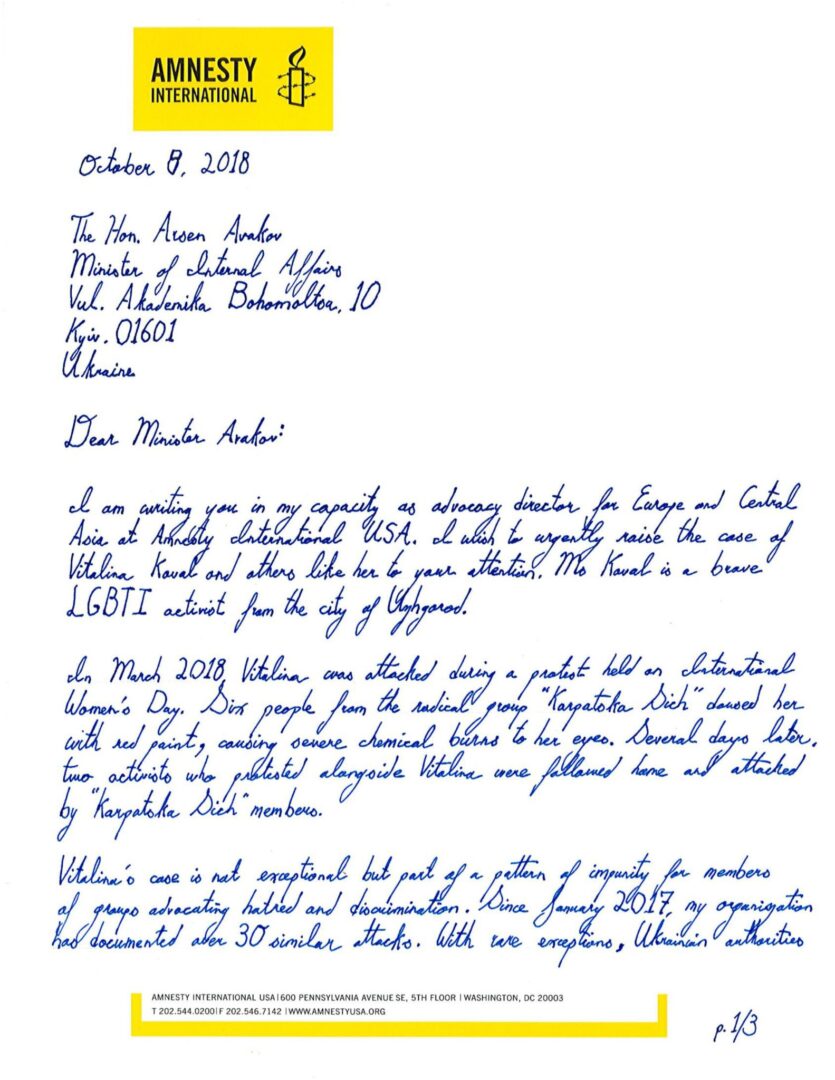 AMNESTY
INTERNATIONAL
October 8, 2018
The Hon. Arsen Avakov
Minister of Internal Affairs
Vul. Akademika Bohomoltsa, 10
Kyiv. 01601
Ukraine
Dear Minister Avakov:
I am writing you in my capacity as advocacy director for Europe and Central
Asia at Amnesty International USA. I wish to urgently raise the case of
Vitalina Koval and others like her to your attention. Ms Koval is a brave
LGBTI activist from the city of Uzhgorod.
In March 2018, Vitalina was attacked during a protest held on International
Women's Day. Six people from the radical group "Karpatska Sich" doused her
with red paint, causing severe chemical burns to her eyes. Several days later,
two activists who protested alongside Vitalina were followed home and attacked
by "Karpatska Sich" members.
Vitalina's case is not exceptional but part of a pattern of impunity for members
of groups advocating hatred and discrimination. Since January 2017, my organization
has documented over 30 similar attacks. With rare exceptions, Ukrainian authorities
AMNESTY INTERNATIONAL USA | 600 PENNSYLVANIA AVENUE SE, 5TH FLOOR | WASHINGTON, DC 20003
T 202.544.0200 | F 202.546.7142 | WWW.AMNESTYUSA.ORG
p. 1/3